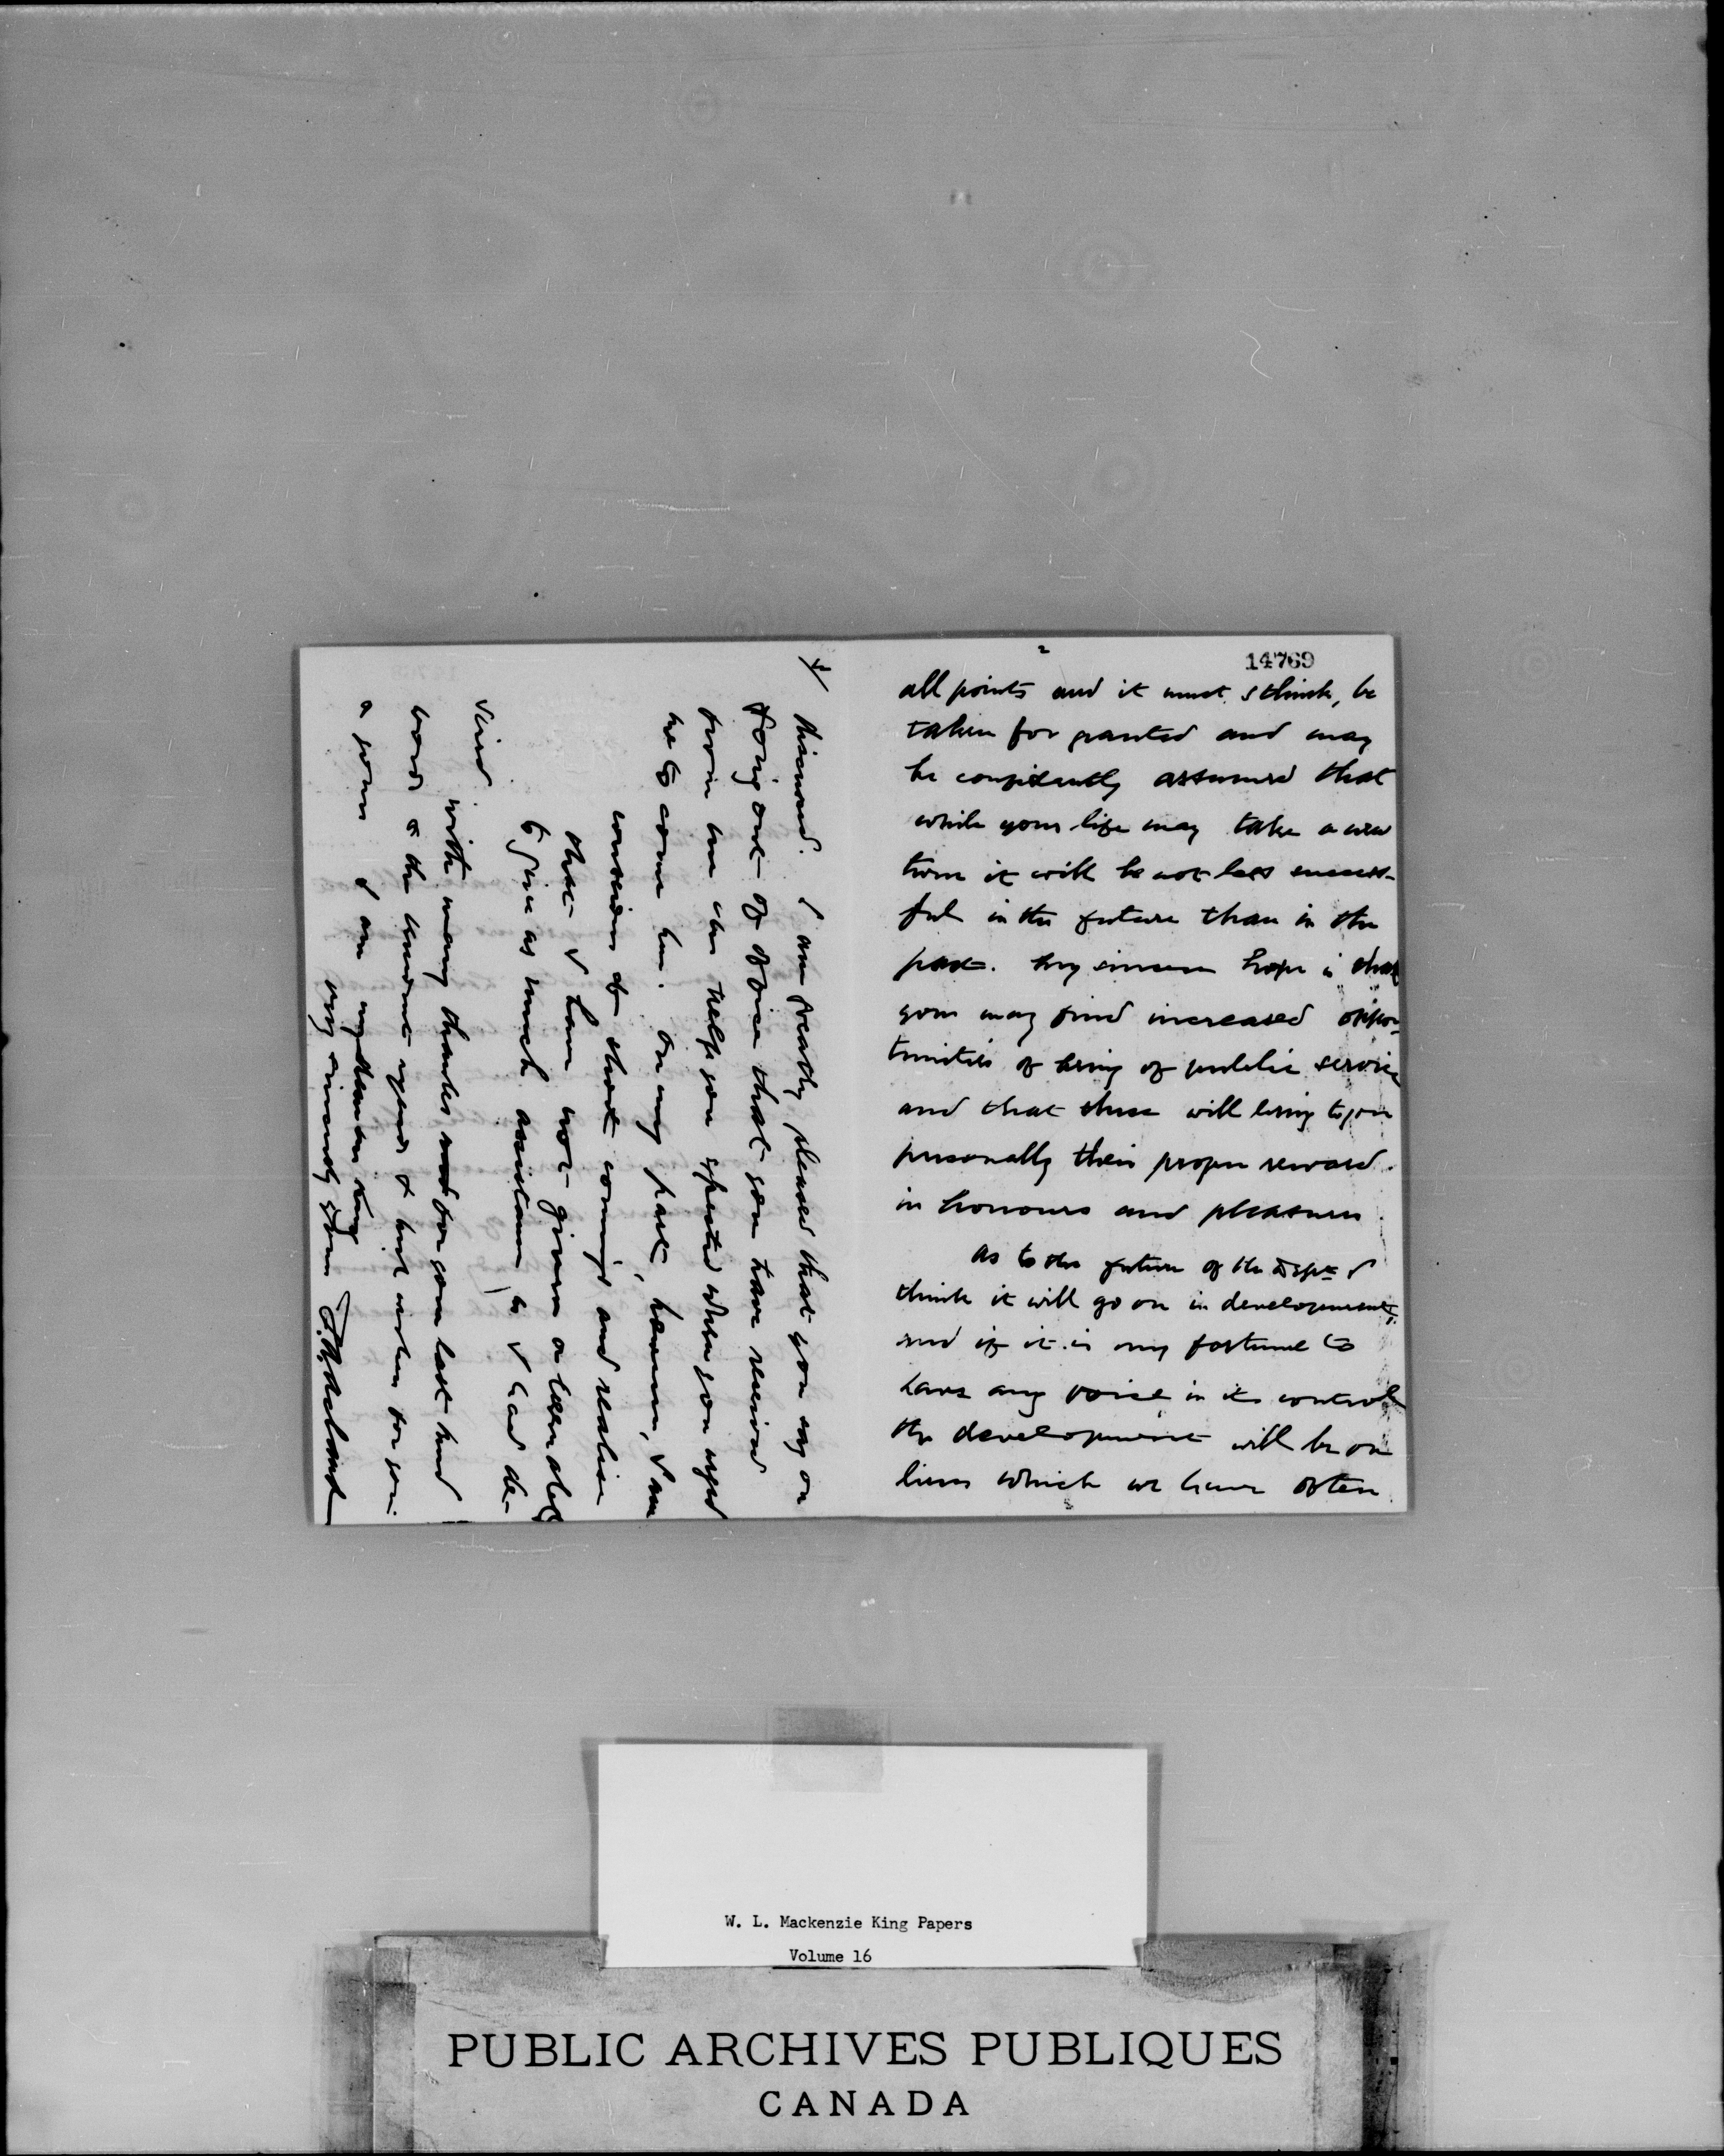 2
14769
all points and it must, I think, be
taken for granted and may
be confidently assumed that
while your life may take a new
turn it will be not less success-
ful in the future than in the
past. My sincere hope is that
you may find increased oppor-
tunities of being of public service
and that these will bring to you
personally their proper reward
in honours and pleasures.
As to the future of the Dept I
think it will go on in development,
and if it is my fortune to
have any voice in its control
the development will be on
lines which we have often
4
discussed. I am greatly pleased that you say on
going out of office that you have received
from me the help you expected when you urged
me to come here. On my part, however, I am
conscious of short comings and realise
that I have not given or been able
to give as much assistance as I had de-
sired.
With many thanks for your last kind
words & the kindest regards & best wishes for you
& yours I am my dear King
very sincerely yours F. A. Acland
W. L. Mackenzie King Papers
Volume 16
PUBLIC ARCHIVES PUBLIQUES
CANADA